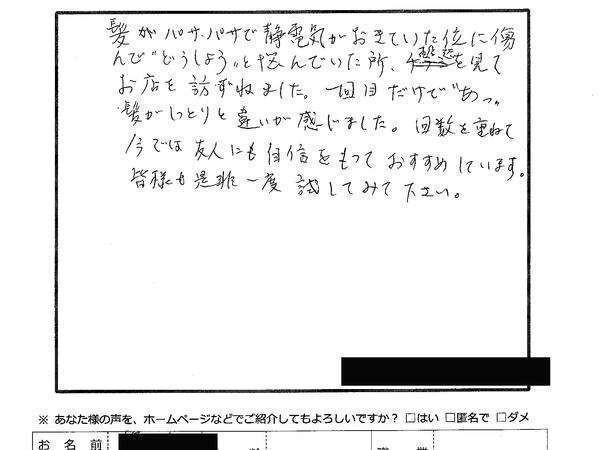 髪がパサパサで静電気がおきていた位に傷
んで"どうしよう"と悩んでいた所、を見て
お店を訪ずねました。一回目だけで"あっ"
髪がしっとりと違いが感じました。回数を重ねて
今では友人にも自信をもっておすすめしています。
皆様も是非一度試してみて下さい。
※ あなた様の声を、ホームページなどでご紹介してもよろしいですか？ □はい □匿名で □ダメ
お名前
職業